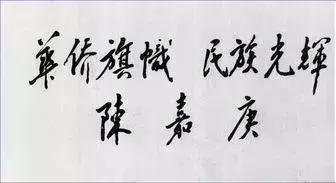 华侨旗幟 民族光輝
陳嘉庚